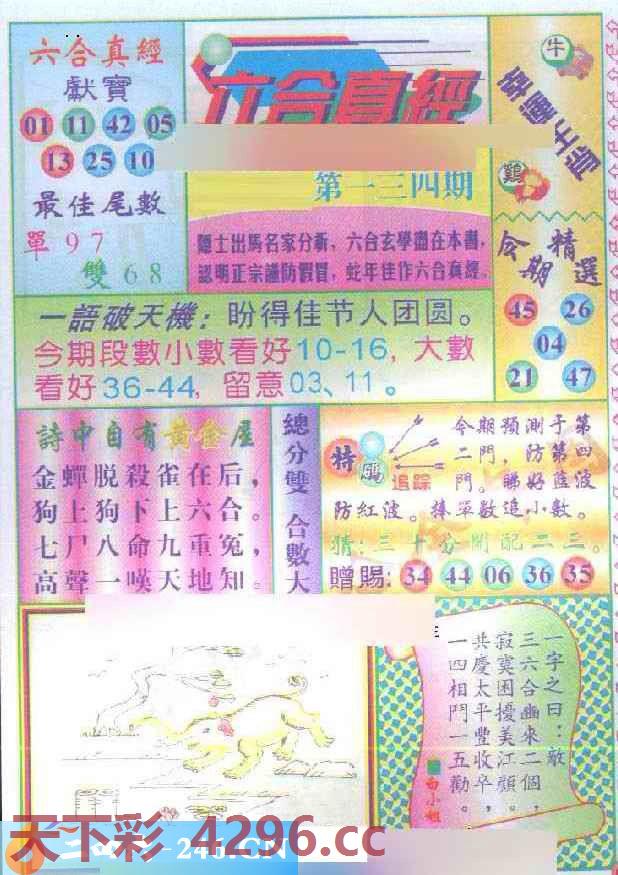 六合真經
獻寶
01 11 42 05
13 25 10
最佳尾數
單 9 7
雙 6 8
六合真經
第一三四期
隱士出馬名家分析，六合玄學盡在本書，
認明正宗謹防假冒，蛇年佳作六合真經。
牛
鷄
今期精選
45 26
04
21 47
一語破天機：盼得佳节人团圆。
今期段數小數看好10-16，大數
看好36-44，留意03、11。
詩中自有黄金屋
金蟬脱殺雀在后，
狗上狗下上六合。
七尸八命九重冤，
高聲一嘆天地知。
總分雙 合數大
特碼
追踪
今期預測于第
二門，防第四
門。睇好藍波
防紅波。捧單數追小數。
猜：三十分開配二三。
贈賜：34 44 06 36 35
一字之曰：敵
三六合幽來二個
寂寞困擾美江頭，
共慶太平豐收卒，
一四相鬥一五勸。
白小姐
天下彩 4296.cc
246.CN